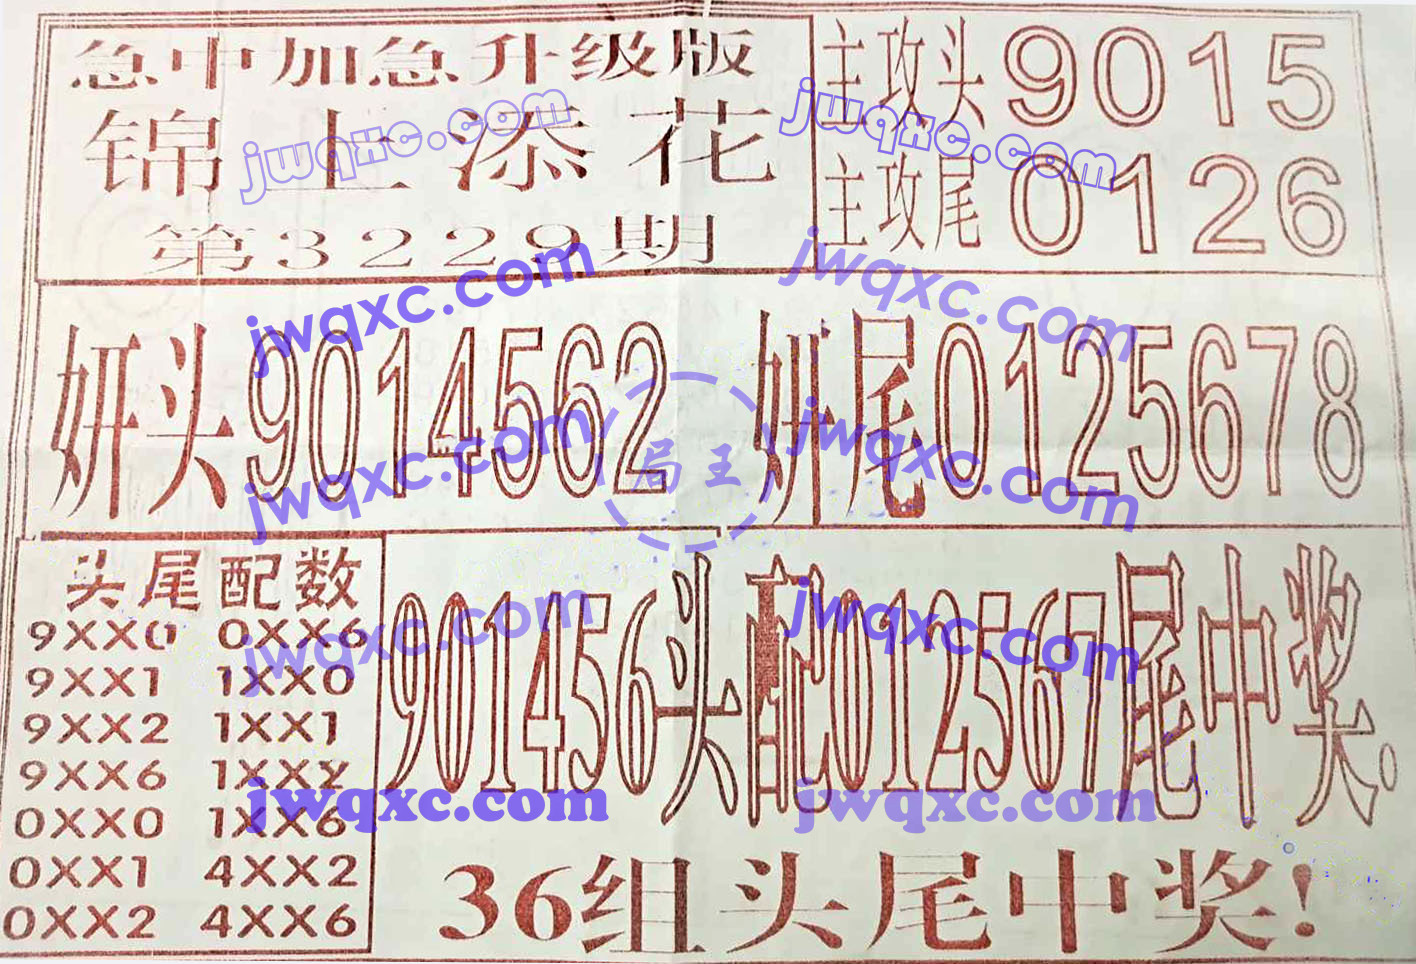 急中加急升级版
锦上添花
第3229期
主攻头9015
主攻尾0126
妍头9014562
妍尾0125678
头尾配数
9XX0 0XX6
9XX1 1XX0
9XX2 1XX1
9XX6 1XX2
0XX0 1XX6
0XX1 4XX2
0XX2 4XX6
901456头配012567尾中奖。
36组头尾中奖!
jwqxc.com
jwqxc.com
jwqxc.com
jwqxc.com
jwqxc.com
jwqxc.com
jwqxc.com
jwqxc.com
jwqxc.com
jwqxc.com
局王